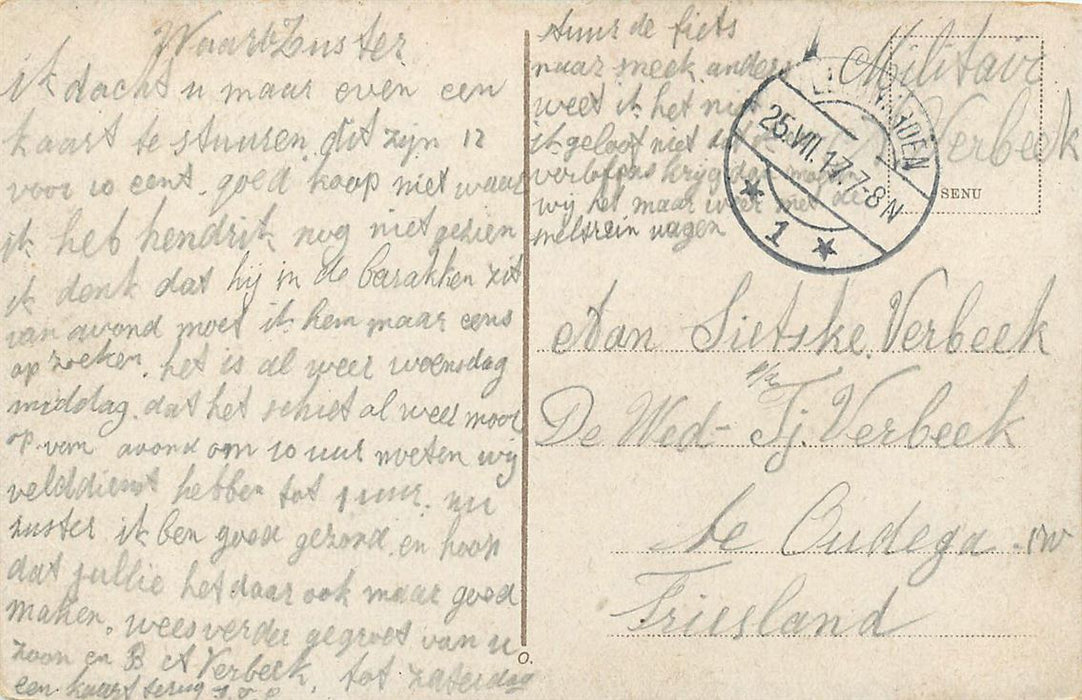 Waarde Zuster
ik dacht u maar even een
kaart te stuuren. dit zijn 12
voor 10 cent. goed koop niet waar
ik heb hendrik nog niet gezien
ik denk dat hij in de barakken zit
van avond moet ik hem maar eens
op zoeken. het is al weer woensdag
middag. dat het schiet al weer mooi
op. van avond om 10 uur moeten wij
velddienst hebben tot 1 uur. nu
zuster ik ben goed gezond en hoop
dat jullie het daar ook maar goed
maken. wees verder gegroet van u
zoon en B A Verbeek. tot zaterdag
een kaart terug
stuur de fiets
naar sneek anders
weet ik het niet
ik geloof niet dat
verlofpas krijg dan moeten
wij het maar weer met de
sneltrein wagen
Militair
Verbeek
LEEUWARDEN
25.VII.17.7-8N
1
SENU
Aan Sietske Verbeek
p/a
De Wed- Tj. Verbeek
te Oudega. IW
Friesland
O.